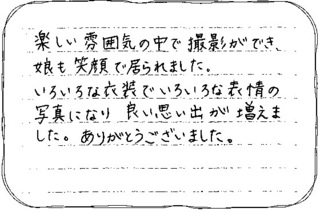 楽しい雰囲気の中で撮影ができ、
娘も笑顔で居られました。
いろいろな衣装でいろいろな表情の
写真になり 良い思い出が増えま
した。ありがとうございました。